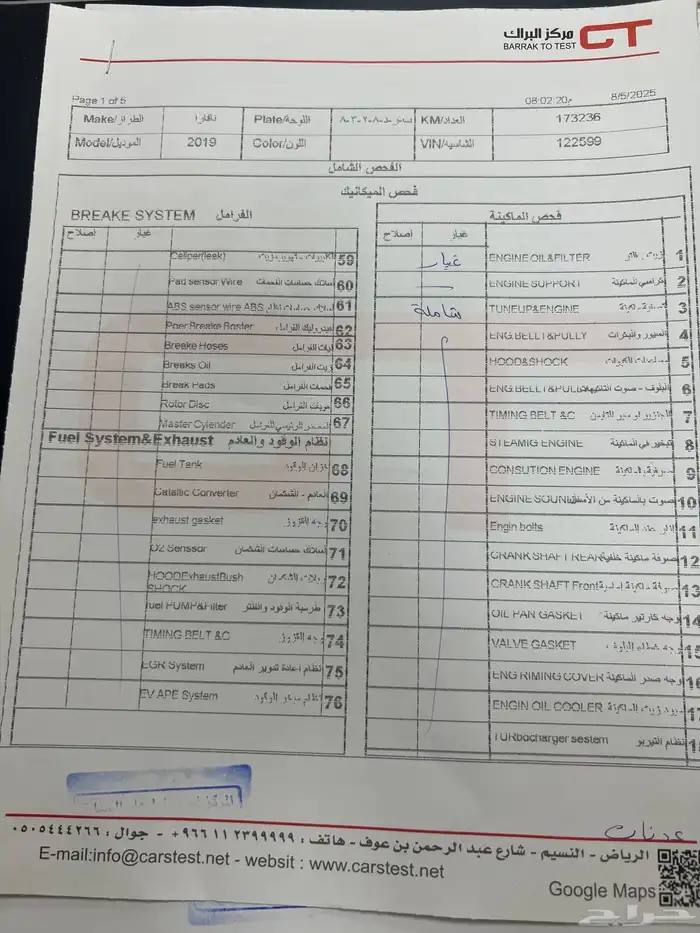 مركز البراك
BARRAK TO TEST
CT
Page 1 of 5
08:02:20م 8/5/2025
Make/الطراز نافارا Plate/اللوحة KM/العداد 173236
Model/الموديل 2019 Color/اللون VIN/الشاسية 122599
الفحص الشامل
فحص الميكانيك
فحص الماكينة
اصلاح غيار
غيار ENGINE OIL&FILTER 1
ENGINE SUPPORT كراسي الماكينة 2
شاملة TUNEUP&ENGINE 3
ENG.BELLT&PULLY السيور والبكرات 4
HOOD&SHOCK 5
ENG.BELLT&PULL البلوف - صوت التاكيهات 6
TIMING BELT &C 7
STEAMIG ENGINE تبخير في الماكينة 8
CONSUTION ENGINE 9
ENGINE SOUND صوت بالماكينة من الأسفل 10
Engin bolts 11
CRANK SHAFT REAR صوفة ماكينة خلفية 12
CRANK SHAFT Front 13
OIL PAN GASKET وجه كارتير ماكينة 14
VALVE GASKET 15
ENG RIMING COVER وجه صدر الماكينة 16
ENGIN OIL COOLER 17
TURbocharger sestem نظام التيربو
BREAKE SYSTEM الفرامل
اصلاح غيار
Caliper(leak) 59
Pad sensor Wire اسلاك حساسات القمصات 60
ABS sensor wire ABS 61
Poer Breake Boster هيدروليك الفرامل 62
Breake Hoses ليات الفرامل 63
Breaks Oil زيت الفرامل 64
Break Pads قمصات الفرامل 65
Rotor Disc هوبات الفرامل 66
Master Cylender الماستر الرئيسي للفرامل 67
Fuel System&Exhaust نظام الوقود والعادم
Fuel Tank خزان الوقود 68
Catallic Converter العادم - الشكمان 69
exhaust gasket 70
O2 Senssor اسلاك حساسات الشكمان 71
HOODExhaustBush SHOCK 72
fuel PUMP&Filter طرمبة الوقود والفلتر 73
TIMING BELT &C 74
EGR System نظام اعادة تدوير العادم 75
EV APE System نظام مبخر الوقود 76
عدنان
الرياض - النسيم - شارع عبد الرحمن بن عوف - هاتف : ٩٦٦١١٢٣٩٩٩٩٩+ - جوال : ٠٥٠٥٤٤٤٢٦٦
E-mail:info@carstest.net - websit : www.carstest.net
Google Maps
حراج